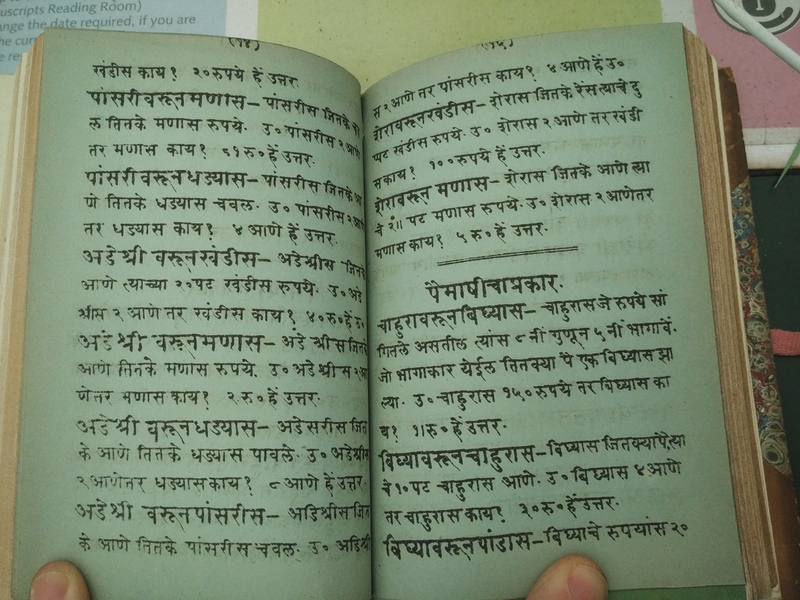 uscripts Reading Room)
nge the date required, if you are
(१४)
खंडीस काय? २०रुपये हें उत्तर.
पांसरीवरूनमणास— पांसरीस जितके
ल तितके मणास रुपये. उ० पांसरीस २आणे
तर मणास काय? ५१रु०हें उत्तर.
पांसरीवरूनधडयास— पांसरीस जितके आ
णे तितके धडयास चवल. उ० पांसरीस २आणे
तर धडयास काय? ४ आणे हें उत्तर.
अडेश्री वरूनखंडीस— अडेश्रीस जितके
आणे त्याच्या २०पट खंडीस रुपये. उ० अडे
श्रीस २ आणे तर खंडीस काय? ४०रु०हें उ०
अडेश्री वरूनमणास— अडेश्रीस जितके
आणे तितके मणास रुपये. उ० अडेश्रीस २आ
णेतर मणास काय? २रु० हें उत्तर.
अडेश्री वरूनधडयास— अडेसरीस जित
के आणे तितके धडयास पावले. उ० अडेश्रीस
२आणेतर धडयासकाय? ८आणे हें उत्तर.
अडेश्री वरूनपांसरीस— अडेश्रीस जित
के आणे तितके पांसरीस चवल. उ० अडेश्रीस
(१५)
स २आणे तर पांसरीस काय? ४ आणे हें उ०
शेरावरूनखंडीस— शेरास जितके रेस त्याचे दु
प्पट खंडीस रुपये. उ० शेरास २ आणे तर खंडी
सकाय? १००रुपये हें उत्तर.
शेरावरून मणास— शेरास जितके आणे त्या
चे २॥ पट मणास रुपये. उ० शेरास २ आणेतर
मणास काय? ५ रु० हें उत्तर.
पैमाषीचाप्रकार.
चाहुरावरूनबिघ्यास— चाहुरासजे रुपये सां
गितले असतील त्यांस ८नीं गुणून ५नीं भागावें.
जो भागाकार येईल तितक्या पै एक बिघ्यास झा
ल्या. उ० चाहुरास १५०रुपये तर बिघ्यास का
य? १।रु०हें उत्तर.
बिघ्यावरूनचाहुरास— बिघ्यास जितक्यापै,त्या
चे१०पट चाहुरास आणे. उ० बिघ्यास ४आणे
तर चाहुरास काय? ३०रु०हेंउत्तर.
बिघ्यावरूनपांडास— बिघ्याचे रुपयांस २०